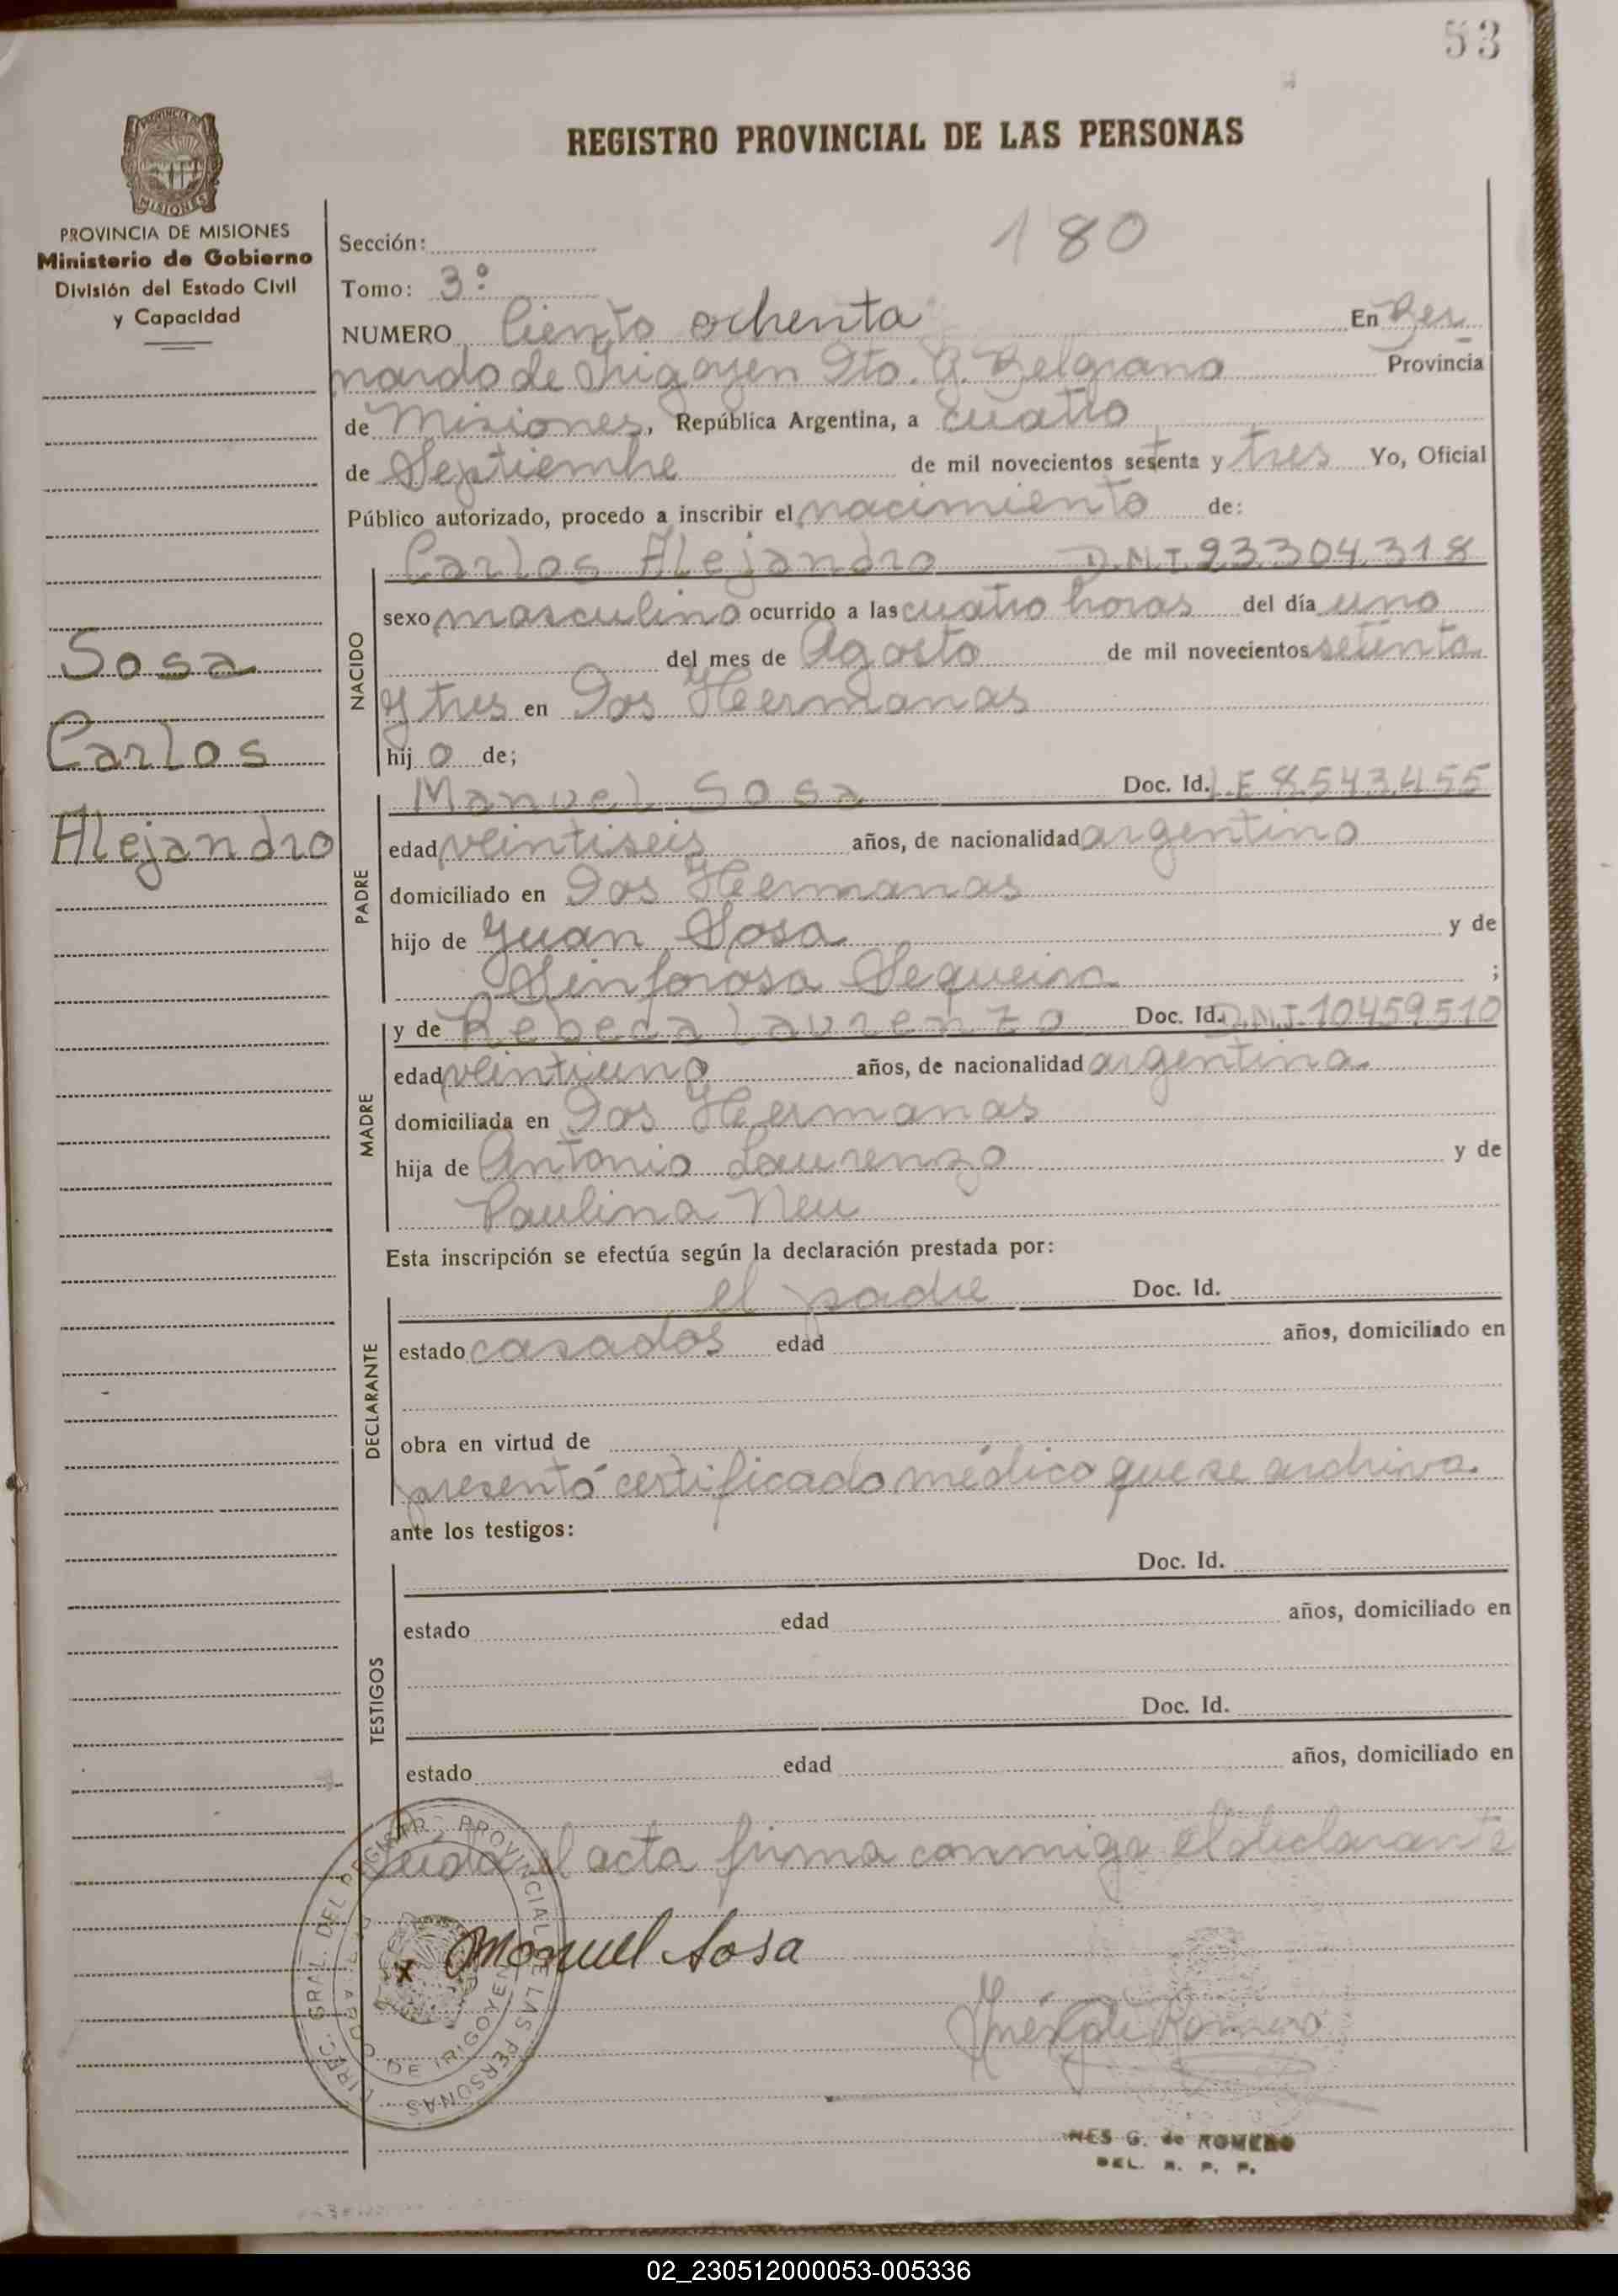 53
PROVINCIA DE MISIONES
REGISTRO PROVINCIAL DE LAS PERSONAS
PROVINCIA DE MISIONES
Ministerio de Gobierno
División del Estado Civil
y Capacidad
Sección:
180
Tomo: 3º
NUMERO Ciento ochenta En Ber
nardo de Irigoyen Dto. G. Belgrano Provincia
de Misiones, República Argentina, a cuatro
de Septiembre de mil novecientos setenta y tres Yo, Oficial
Público autorizado, procedo a inscribir el nacimiento de:
NACIDO
Carlos Alejandro D.N.I. 23.304.318
sexo masculino ocurrido a las cuatro horas del día uno
del mes de Agosto de mil novecientos setenta
y tres en Dos Hermanas
hijo de;
Sosa
Carlos
Alejandro
PADRE
Manuel Sosa Doc. Id. L.E 8.543.455
edad veintiseis años, de nacionalidad argentino
domiciliado en Dos Hermanas
hijo de Juan Sosa y de
Sinforosa Sequeira ;
MADRE
y de Rebeca Laurenzo Doc. Id. D.N.I. 10459510
edad veintiuno años, de nacionalidad argentina
domiciliada en Dos Hermanas
hija de Antonio Laurenzo y de
Paulina Neu
Esta inscripción se efectúa según la declaración prestada por:
DECLARANTE
el padre Doc. Id.
estado casados edad años, domiciliado en
obra en virtud de
presentó certificado médico que se archiva
ante los testigos:
TESTIGOS
Doc. Id.
estado edad años, domiciliado en
Doc. Id.
estado edad años, domiciliado en
Leída el acta firma conmigo el declarante
DIREC. GRAL. DEL REGISTR. PROVINCIAL DE LAS PERSONAS
DE IRIGOYEN
x Manuel Sosa
Inés G. de Romero
INES G. de ROMERO
DEL. R. P. P.
02_230512000053-005336